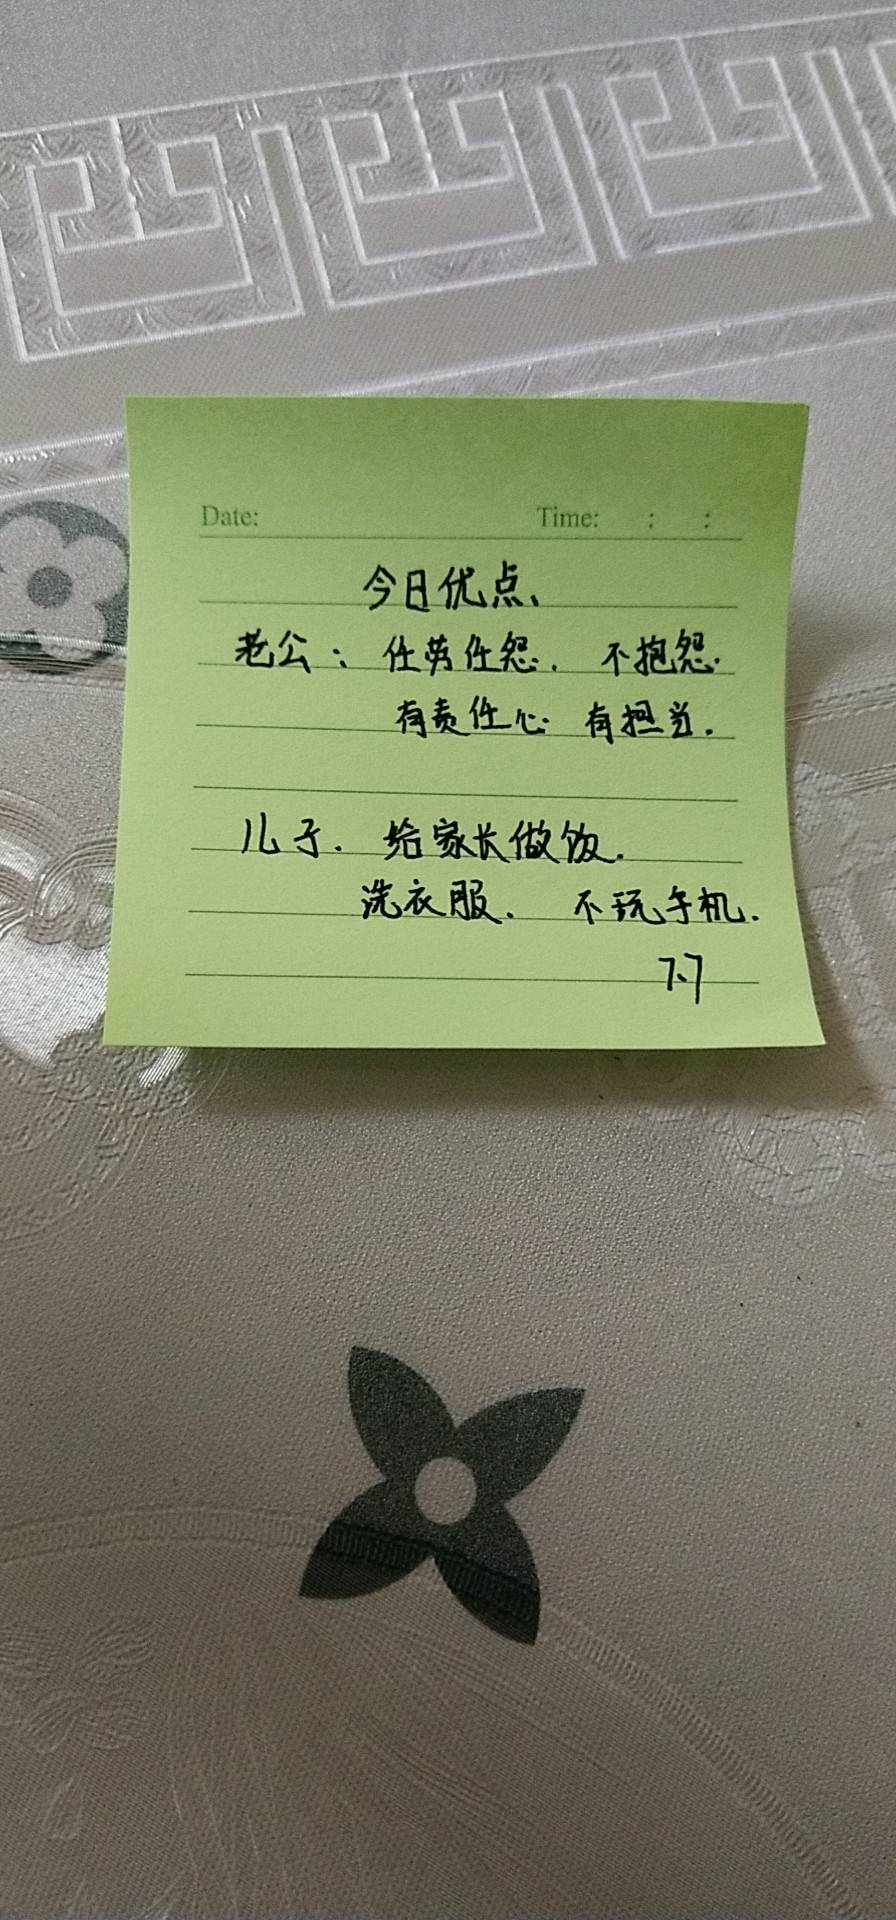 Date: Time: : :
今日优点、
老公：任劳任怨. 不抱怨.
有责任心. 有担当.
儿子. 给家长做饭.
洗衣服. 不玩手机.
7.7